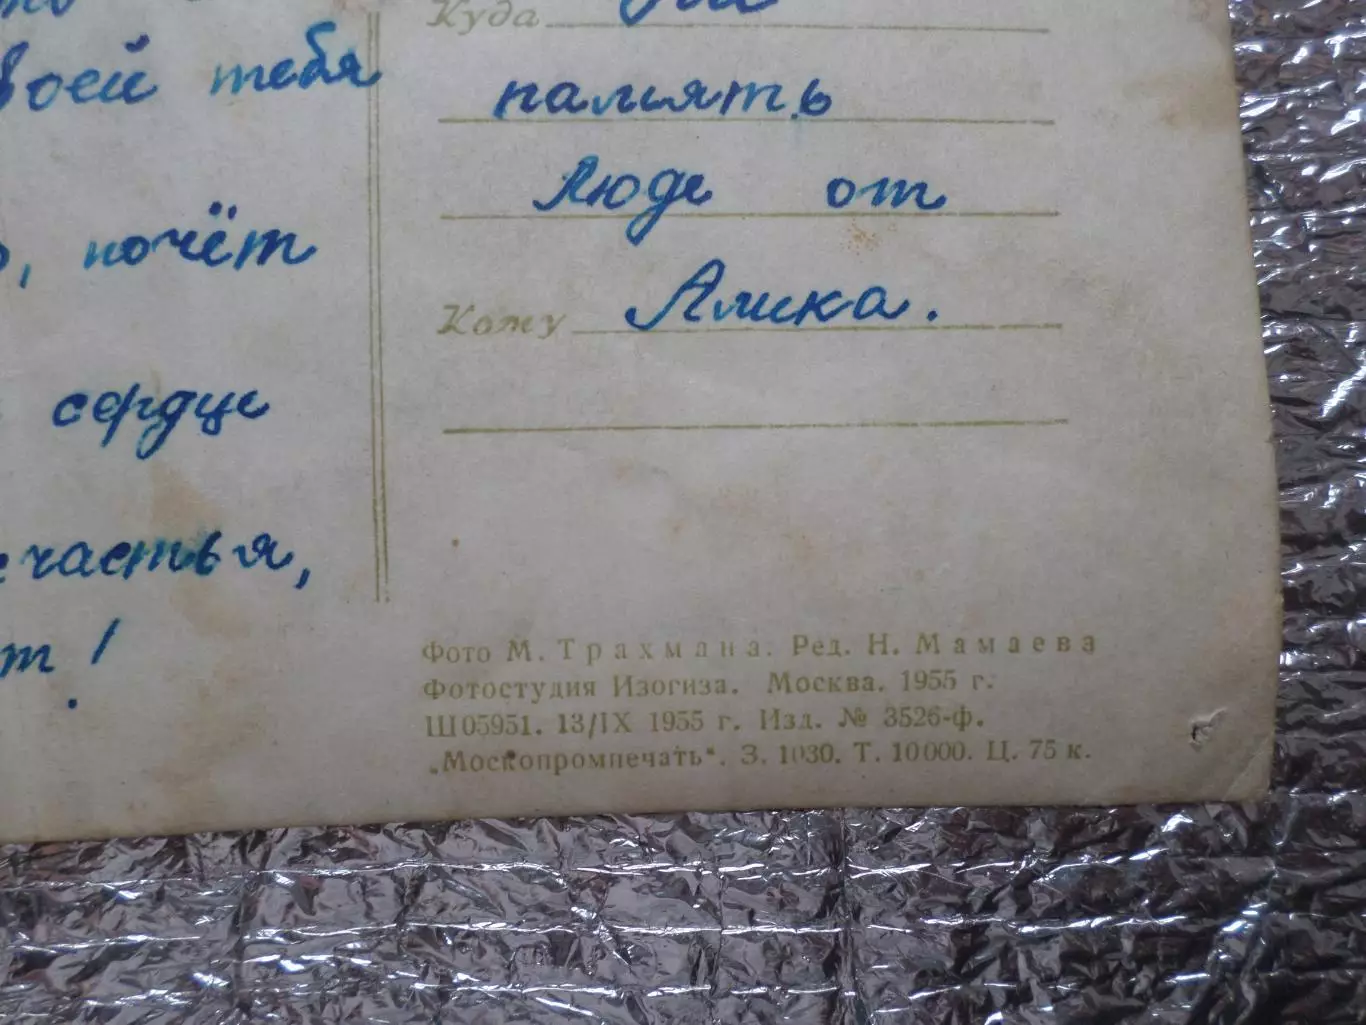 воей тебя
, почёт
сердце
счастья,
т!
Куда
память
Люде от
Кому Алика.
Фото М. Трахмана. Ред. Н. Мамаева
Фотостудия Изогиза. Москва. 1955 г.
Ш05951. 13/IX 1955 г. Изд. № 3526-ф.
„Москопромпечать“. З. 1030. Т. 10000. Ц. 75 к.